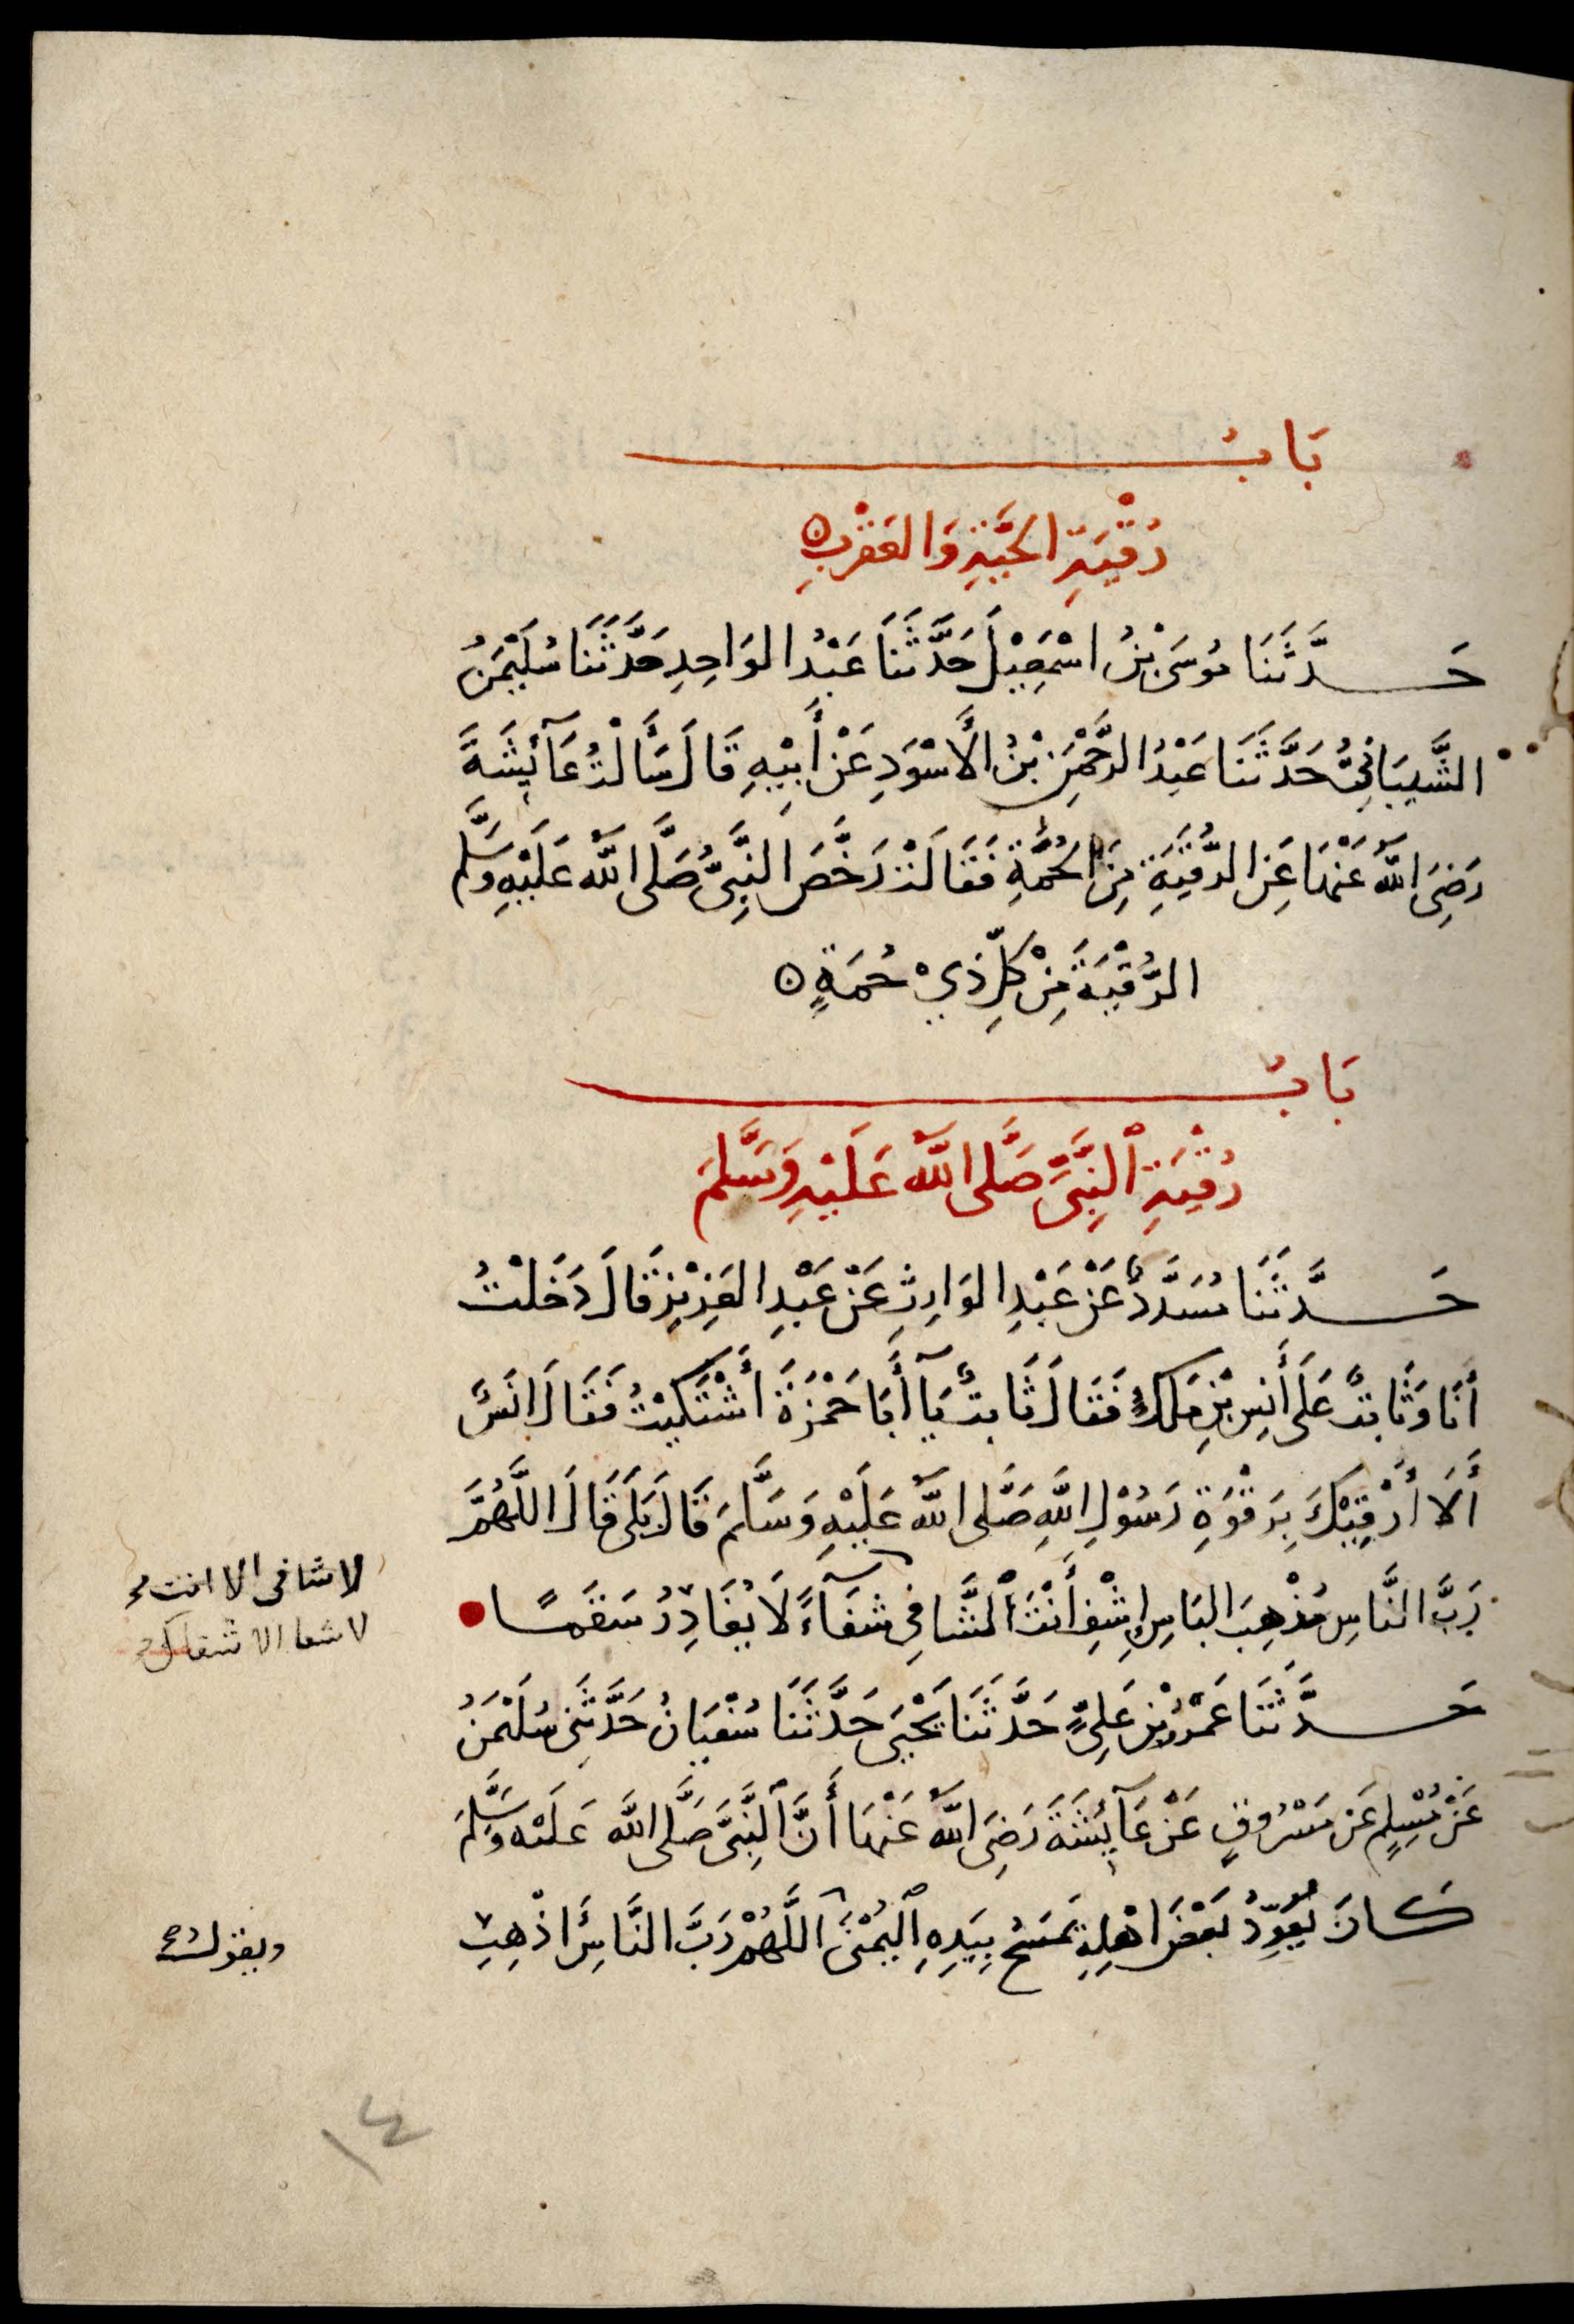 بَابُ
رُقْيَةِ الحَيَّةِ وَالعَقْرَبِ
حَدَّثَنَا مُوسَى بْنُ اسْمَعِيْلَ حَدَّثَنَا عَبْدُ الوَاحِدِ حَدَّثَنَا سُلَيْمَنُ
الشَّيبَانِيُّ حَدَّثَنَا عَبْدُ الرَّحْمَنِ بْنُ الأَسْوَدِ عَنْ أَبِيْهِ قَالَ سَأَلْتُ عَآئِشَةَ
رَضِيَ اللّٰهُ عَنْهَا عَنِ الرُّقْيَةِ مِنَ الحُمَةِ فَقَالَتْ رَخَّصَ النَّبِيُّ صَلَّى اللّٰهُ عَلَيْهِ وَسَلَّم
الرُّقْيَةَ مِنْ كُلِّ ذِيْ حُمَةٍ
بَابُ
رُقْيَةِ النَّبِيِّ صَلَّى اللّٰهُ عَلَيْهِ وَسَلَّمَ
حَدَّثَنَا مُسَدَّدٌ عَنْ عَبْدِ الوَارِثِ عَنْ عَبْدِ العَزِيْزِ قَالَ دَخَلْتُ
أَنَا وَثَابِتٌ عَلَى أَنَسِ بْنِ مَلِكٍ فَقَالَ ثَابِتٌ يَآ أَبَا حَمْزَةَ أشْتَكَيْتُ فَقَالَ انَسٌ
أَلَا أَرْقِيْكَ بِرَقْوَةِ رَسُوْلِ اللّٰهِ صَلَّى اللّٰهُ عَلَيْهِ وَسَلَّمَ قَالَ بَلَى قَالَ اللَّهُمَّ
رَبَّ النَّاسِ مُذْهِبَ البَاسِ إِشْفِ أَنْتَ الشَّافِي شِفَآءً لَا يُغَادِرُ سَقَمًا
لا شافى الا انت
لا شفا الا شفاك
حَدَّثَنَا عَمْرُو بْنُ عَلِيٍّ حَدَّثَنَا يَحْيَى حَدَّثَنَا سُفْيَانُ حَدَّثَنِي سُلَيْمَنُ
عَنْ مُسْلِمٍ عَن مَسْرُوقٍ عَنْ عَآئِشَةَ رَضِيَ اللّٰهُ عَنْهَا أَنَّ النَّبِيَّ صَلَّى اللّٰهُ عَلَيْهِ وَسَلَّمَ
كَانَ يُعَوِّذُ بَعْضَ اهْلِهِ يَمْسَحُ بِيَدِهِ اليُمْنَى اللَّهُمَّ رَبَّ النَّاسِ اذْهِبِ
ويقول
١٤